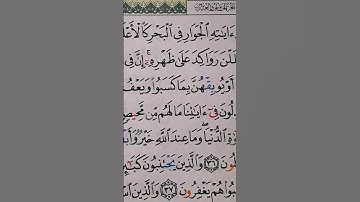 ءَايَٰتِهِ ٱلْجَوَارِ فِى ٱلْبَحْرِ كَٱلْأَعْـ
ـلَلْنَ رَوَاكِدَ عَلَىٰ ظَهْرِهِۦٓ ۚ إِنَّ فِى
أَوْ يُوبِقْهُنَّ بِمَا كَسَبُوا۟ وَيَعْفُ
ـدِلُونَ فِىٓ ءَايَٰتِنَا مَا لَهُم مِّن مَّحِيصٍ
ـوٰةِ ٱلدُّنْيَا ۖ وَمَا عِندَ ٱللَّهِ خَيْرٌ وَأَبْـ
ـلُونَ ٣٦ وَٱلَّذِينَ يَجْتَنِبُونَ كَبَـٰٓـ
ـبُوا۟ هُمْ يَغْفِرُونَ ٣٧ وَٱلَّذِينَ ٱ